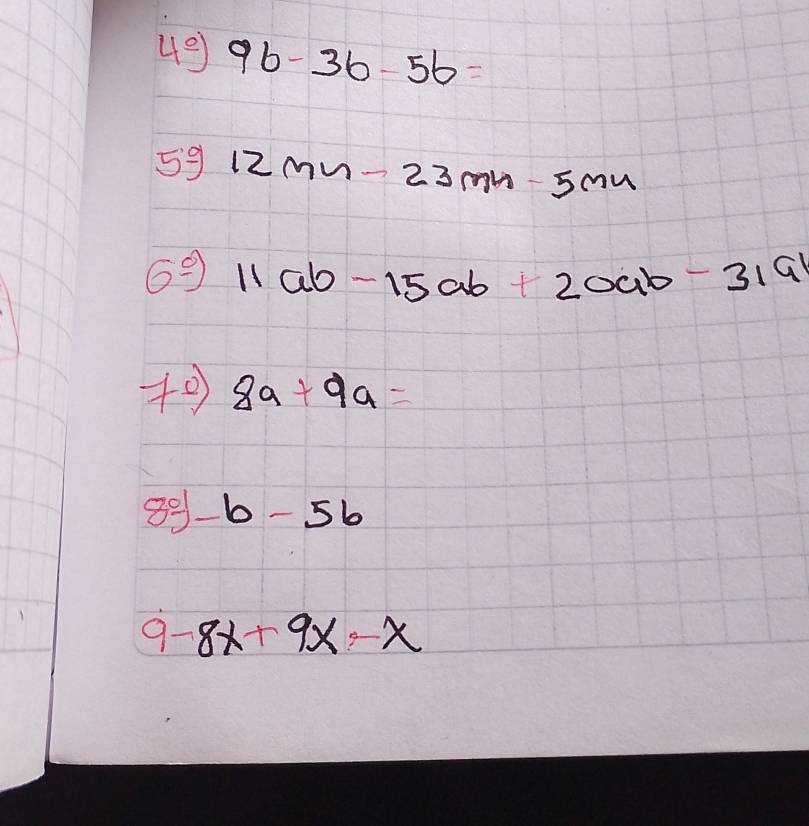 4º) 9b - 3b - 5b =
5º) 12mn - 23mn - 5mn
6º) 11ab - 15ab + 20ab - 31a
7º) 8a + 9a =
8º) -b - 5b
9 -8x + 9x - x